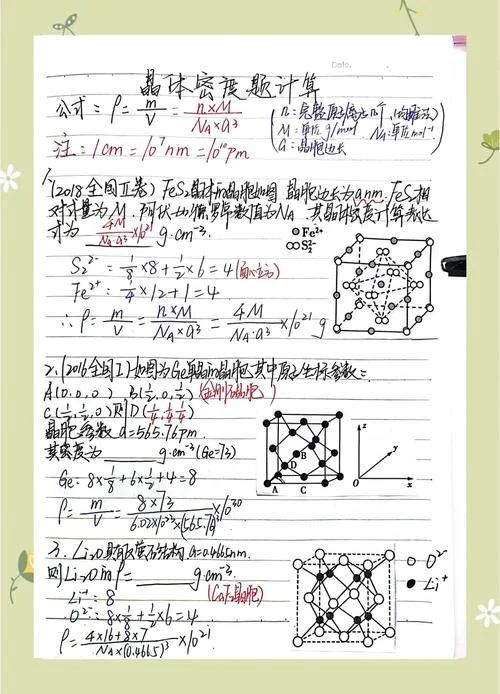 Date.
晶体密度题计算
公式：ρ = m/V = n×M/(N_A×a³)
n：完整原子存在n个 (均摊法)
M：单位g/mol N_A：单位mol⁻¹
a：晶胞边长
注：1cm = 10⁷nm = 10¹⁰pm
1、(2018全国Ⅱ卷) FeS₂晶体的晶胞如图 晶胞边长为a nm. FeS₂相
对式量为M. 阿伏加德罗常数值为N_A 其晶体密度计算表达
式为 4M/(N_A·a³)×10²¹ g·cm⁻³.
Fe²⁺
S₂²⁻
S₂²⁻ = 1/8×8+1/2×6=4 (面心立方)
Fe²⁺ = 1/4×12+1=4
∴ ρ = m/V = n×M/(N_A×a³) = 4M/(N_A·a³)×10²¹ g
2、(2016全国Ⅰ) 如图为Ge单晶的晶胞,其中原子坐标参数：
A(0,0,0) B(1/2,0,1/2) (金刚石晶胞)
C(1/2,1/2,0) 则D(1/4,1/4,1/4)
晶胞参数a=565.76pm.
其密度为 g·cm⁻³ (Ge=73)
Ge: 8×1/8+6×1/2+4=8
ρ = m/V = 8×73/(6.02×10²³×(565.76)³)×10³⁰
A B C D
x y z O
3、Li₂O具有反萤石结构 a=0.4665nm.
则Li₂O的ρ= g·cm⁻³.
Li⁺: 8 (CaF₂晶胞)
O²⁻: 8×1/8+1/2×6=4
ρ = (4×16+8×7)/(N_A×(0.4665)³)×10²¹
O²⁻
Li⁺